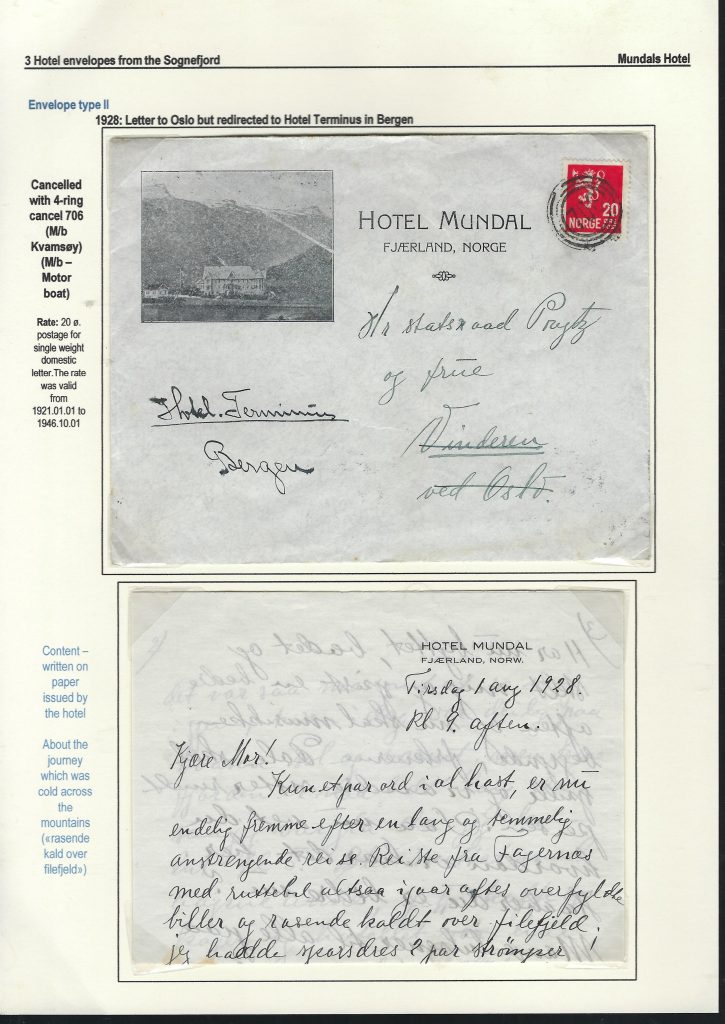 3 Hotel envelopes from the Sognefjord
Mundals Hotel
Envelope type II
1928: Letter to Oslo but redirected to Hotel Terminus in Bergen
Cancelled
with 4-ring
cancel 706
(M/b
Kvamsøy)
(M/b –
Motor
boat)
Rate: 20 ø.
postage for
single weight
domestic
letter.The rate
was valid
from
1921.01.01 to
1946.10.01
HOTEL MUNDAL
FJÆRLAND, NORGE
20
NORGE
Hr statsraad
og frue
Vinderen
ved Oslo.
Hotel. Terminus
Bergen
Content –
written on
paper
issued by
the hotel
About the
journey
which was
cold across
the
mountains
(«rasende
kald over
filefjeld»)
HOTEL MUNDAL
FJÆRLAND, NORW.
Tirsdag 1 aug 1928.
Kl. 9. aften.
Kjære Mor!
Kun et par ord i al hast, er nu
endelig fremme efter en lang og temmelig
anstrengende reise. Reiste fra Fagernæs
med rutebil altsaa igaar aftes overfyldte
biller og rasende koldt over filefjeld,
jeg hadde 2 par strømper